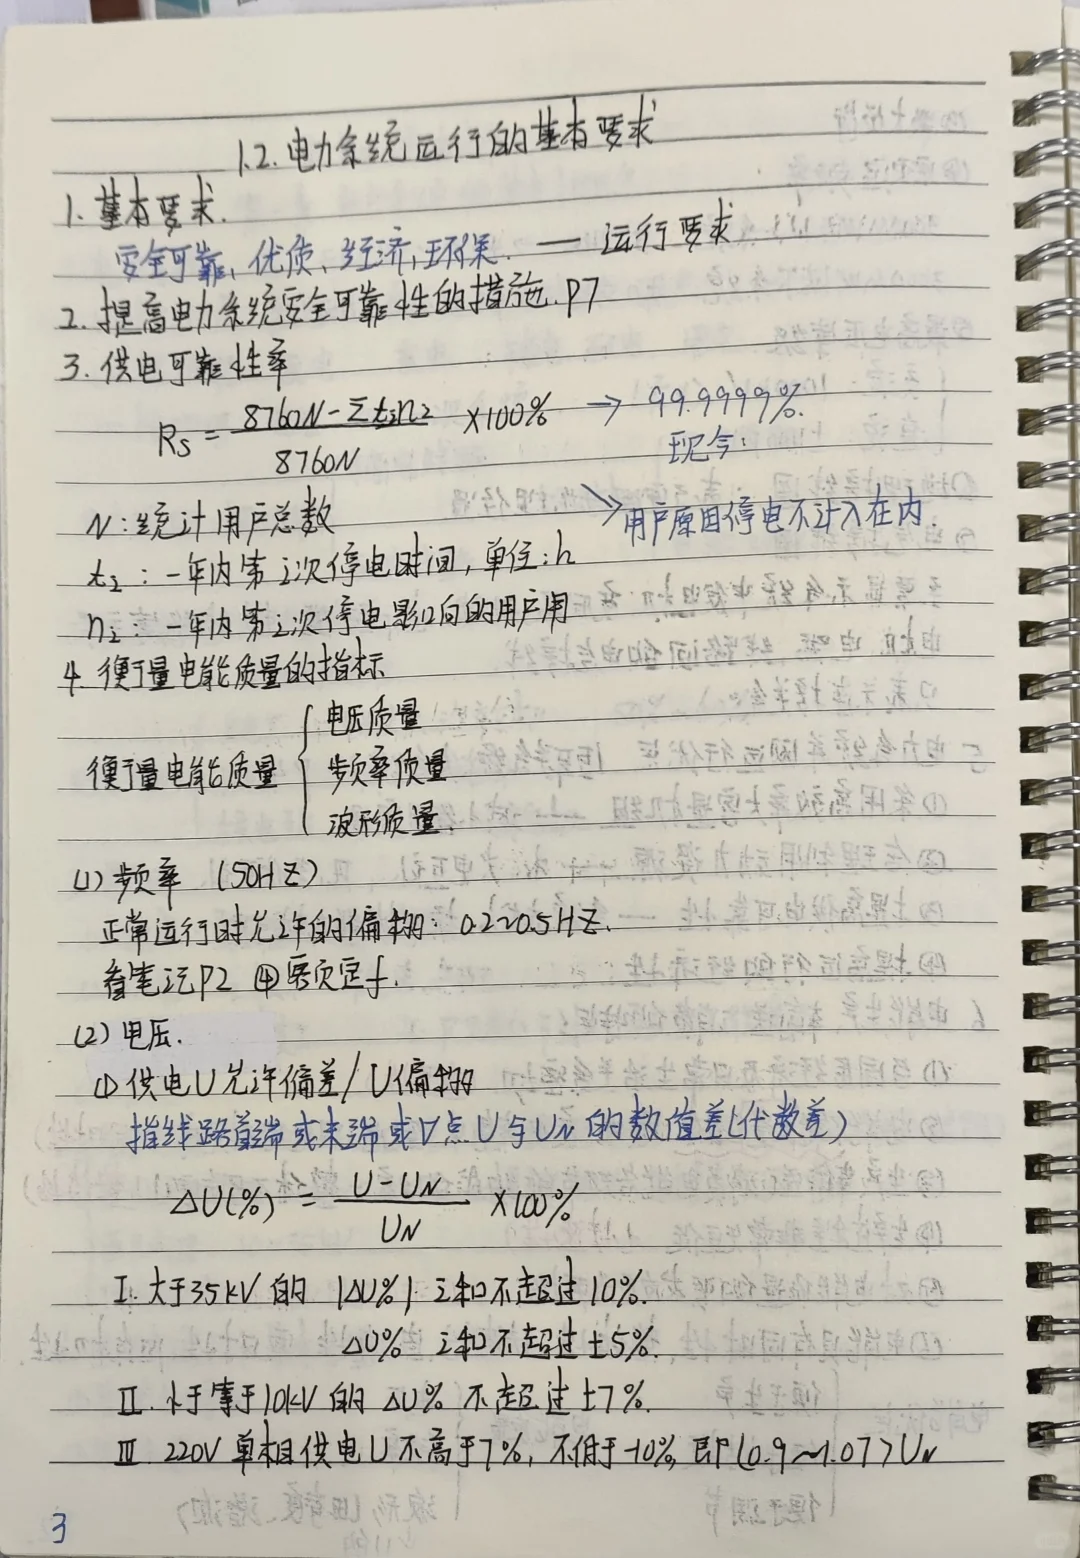 1.2. 电力系统运行的基本要求
1. 基本要求.
安全可靠, 优质, 经济, 环保. — 运行要求
2. 提高电力系统安全可靠性的措施. P7
3. 供电可靠性率
Rs = (8760N - Σtini) / 8760N ×100% → 99.9999%.
现今:
N: 统计用户总数
↘ 用户原因停电不计入在内.
ti: 一年内第i次停电时间, 单位: h
ni: 一年内第i次停电影响的用户用
4. 衡量电能质量的指标
衡量电能质量 { 电压质量
频率质量
波形质量.
(1) 频率 (50HZ)
正常运行时允许的偏移: 0.2~0.5HZ.
看笔记P2 ④ 额定f.
(2) 电压.
① 供电U允许偏差/U偏移
指线路首端或末端或某点U与UN的数值差(代数差)
ΔU(%) = (U-UN) / UN ×100%
I. 大于35kV的 |ΔU%| 之和不超过10%.
ΔU% 之和不超过±5%.
II. 小于等于10kV的 ΔU% 不超过±7%.
III. 220V单相供电U不高于7%, 不低于-10%, 即(0.9~1.07)UN
3